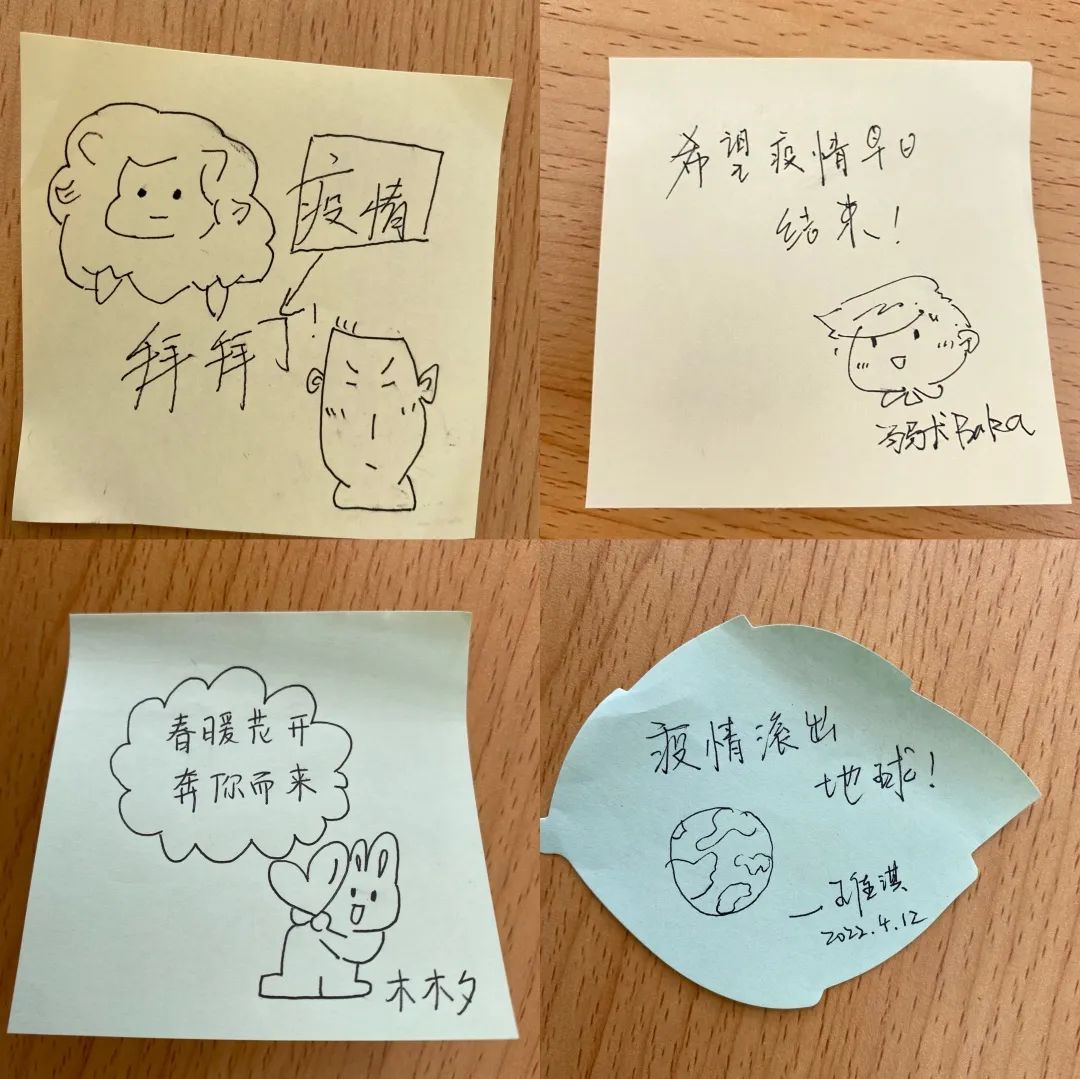 疫情
拜拜了!
希望疫情早日
结束!
Baka
春暖花开
奔你而来
木木夕
疫情滚出
地球!
2022.4.12